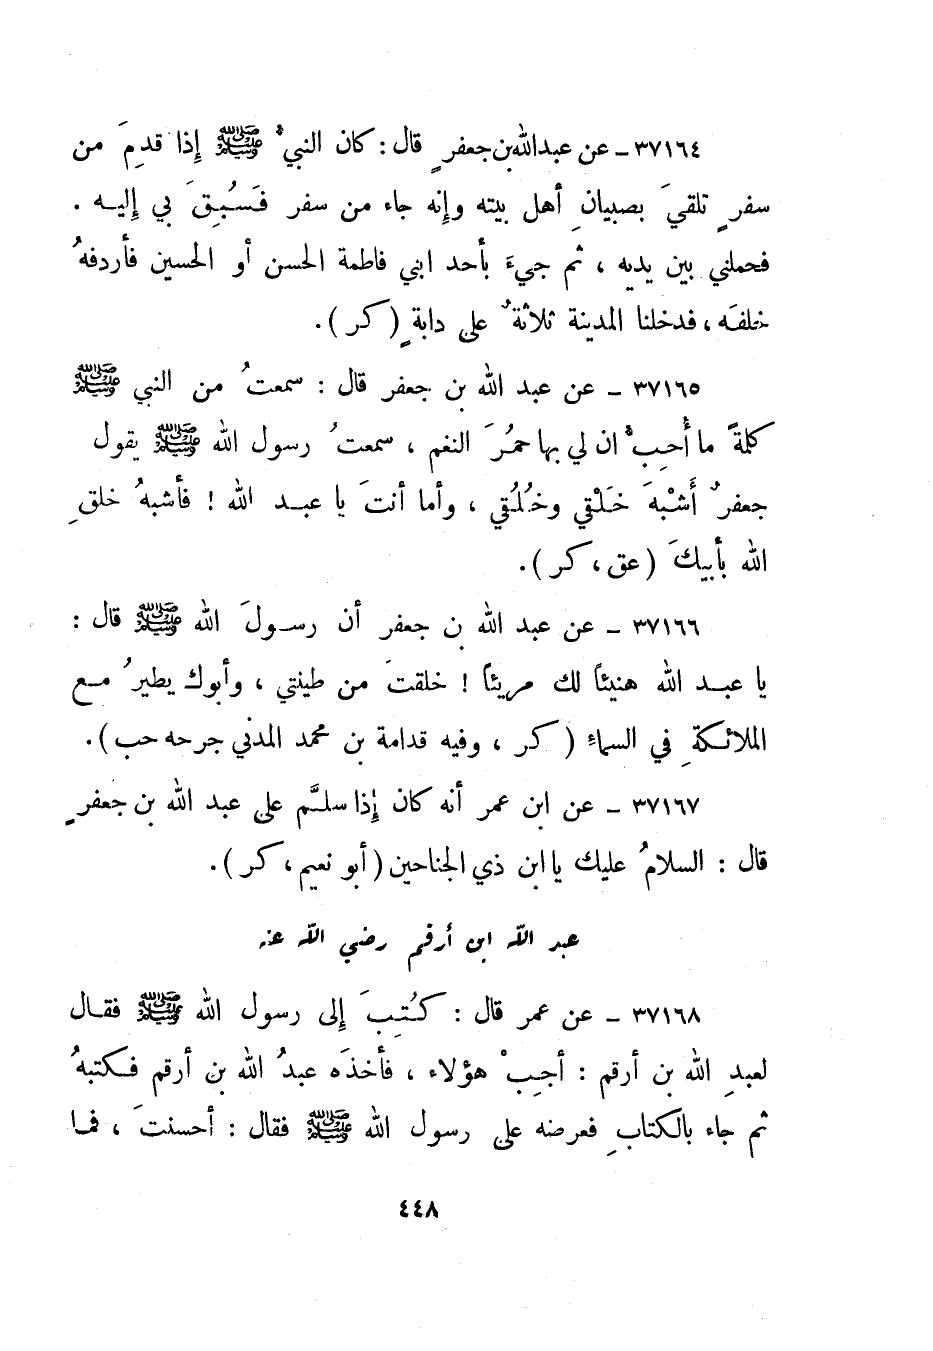 ٣٧١٦٤ - عن عبدالله بن جعفرٍ قال : كان النبيُّ ﷺ إذا قدِمَ من
سفرٍ تلقيَ بصبيانِ أهل بيته وإنه جاء من سفر فَسُبِقَ بي إليه .
فحملني بين يديه ، ثم جيءَ بأحد ابني فاطمة الحسن أو الحسين فأردفهُ
خلفَه ، فدخلنا المدينة ثلاثةٌ على دابةٍ ( كر ) .
٣٧١٦٥ - عن عبد الله بن جعفر قال : سمعتُ من النبي ﷺ
كلمةً ما أُحِبُّ ان لي بها حمُرَ النعم ، سمعتُ رسول الله ﷺ يقول
جعفرٌ أَشْبهَ خَلْقي وخُلُقي ، وأما أنتَ يا عبد الله ! فأشبهُ خلقِ
الله بأبيكَ ( عق ، كر ) .
٣٧١٦٦ - عن عبد الله بن جعفر أن رسولَ الله ﷺ قال :
يا عبد الله هنيئاً لك مريئاً ! خلقتَ من طينتي ، وأبوك يطيرُ مع
الملائكةِ في السماءِ ( كر ، وفيه قدامة بن محمد المدني جرحه حب ) .
٣٧١٦٧ - عن ابن عمر أنه كان إذا سلَّم على عبد الله بن جعفرٍ
قال : السلامُ عليك يا ابن ذي الجناحين ( أبو نعيم ، كر ) .
عبد الله ابن أرقم رضي الله عنه
٣٧١٦٨ - عن عمر قال : كُتِبَ إلى رسول الله ﷺ فقال
لعبدِ الله بن أرقم : أجِبْ هؤلاء ، فأخذَه عبدُ الله بن أرقم فكتبهُ
ثم جاء بالكتابِ فعرضه على رسول الله ﷺ فقال : أحسنتَ ، فما
٤٤٨